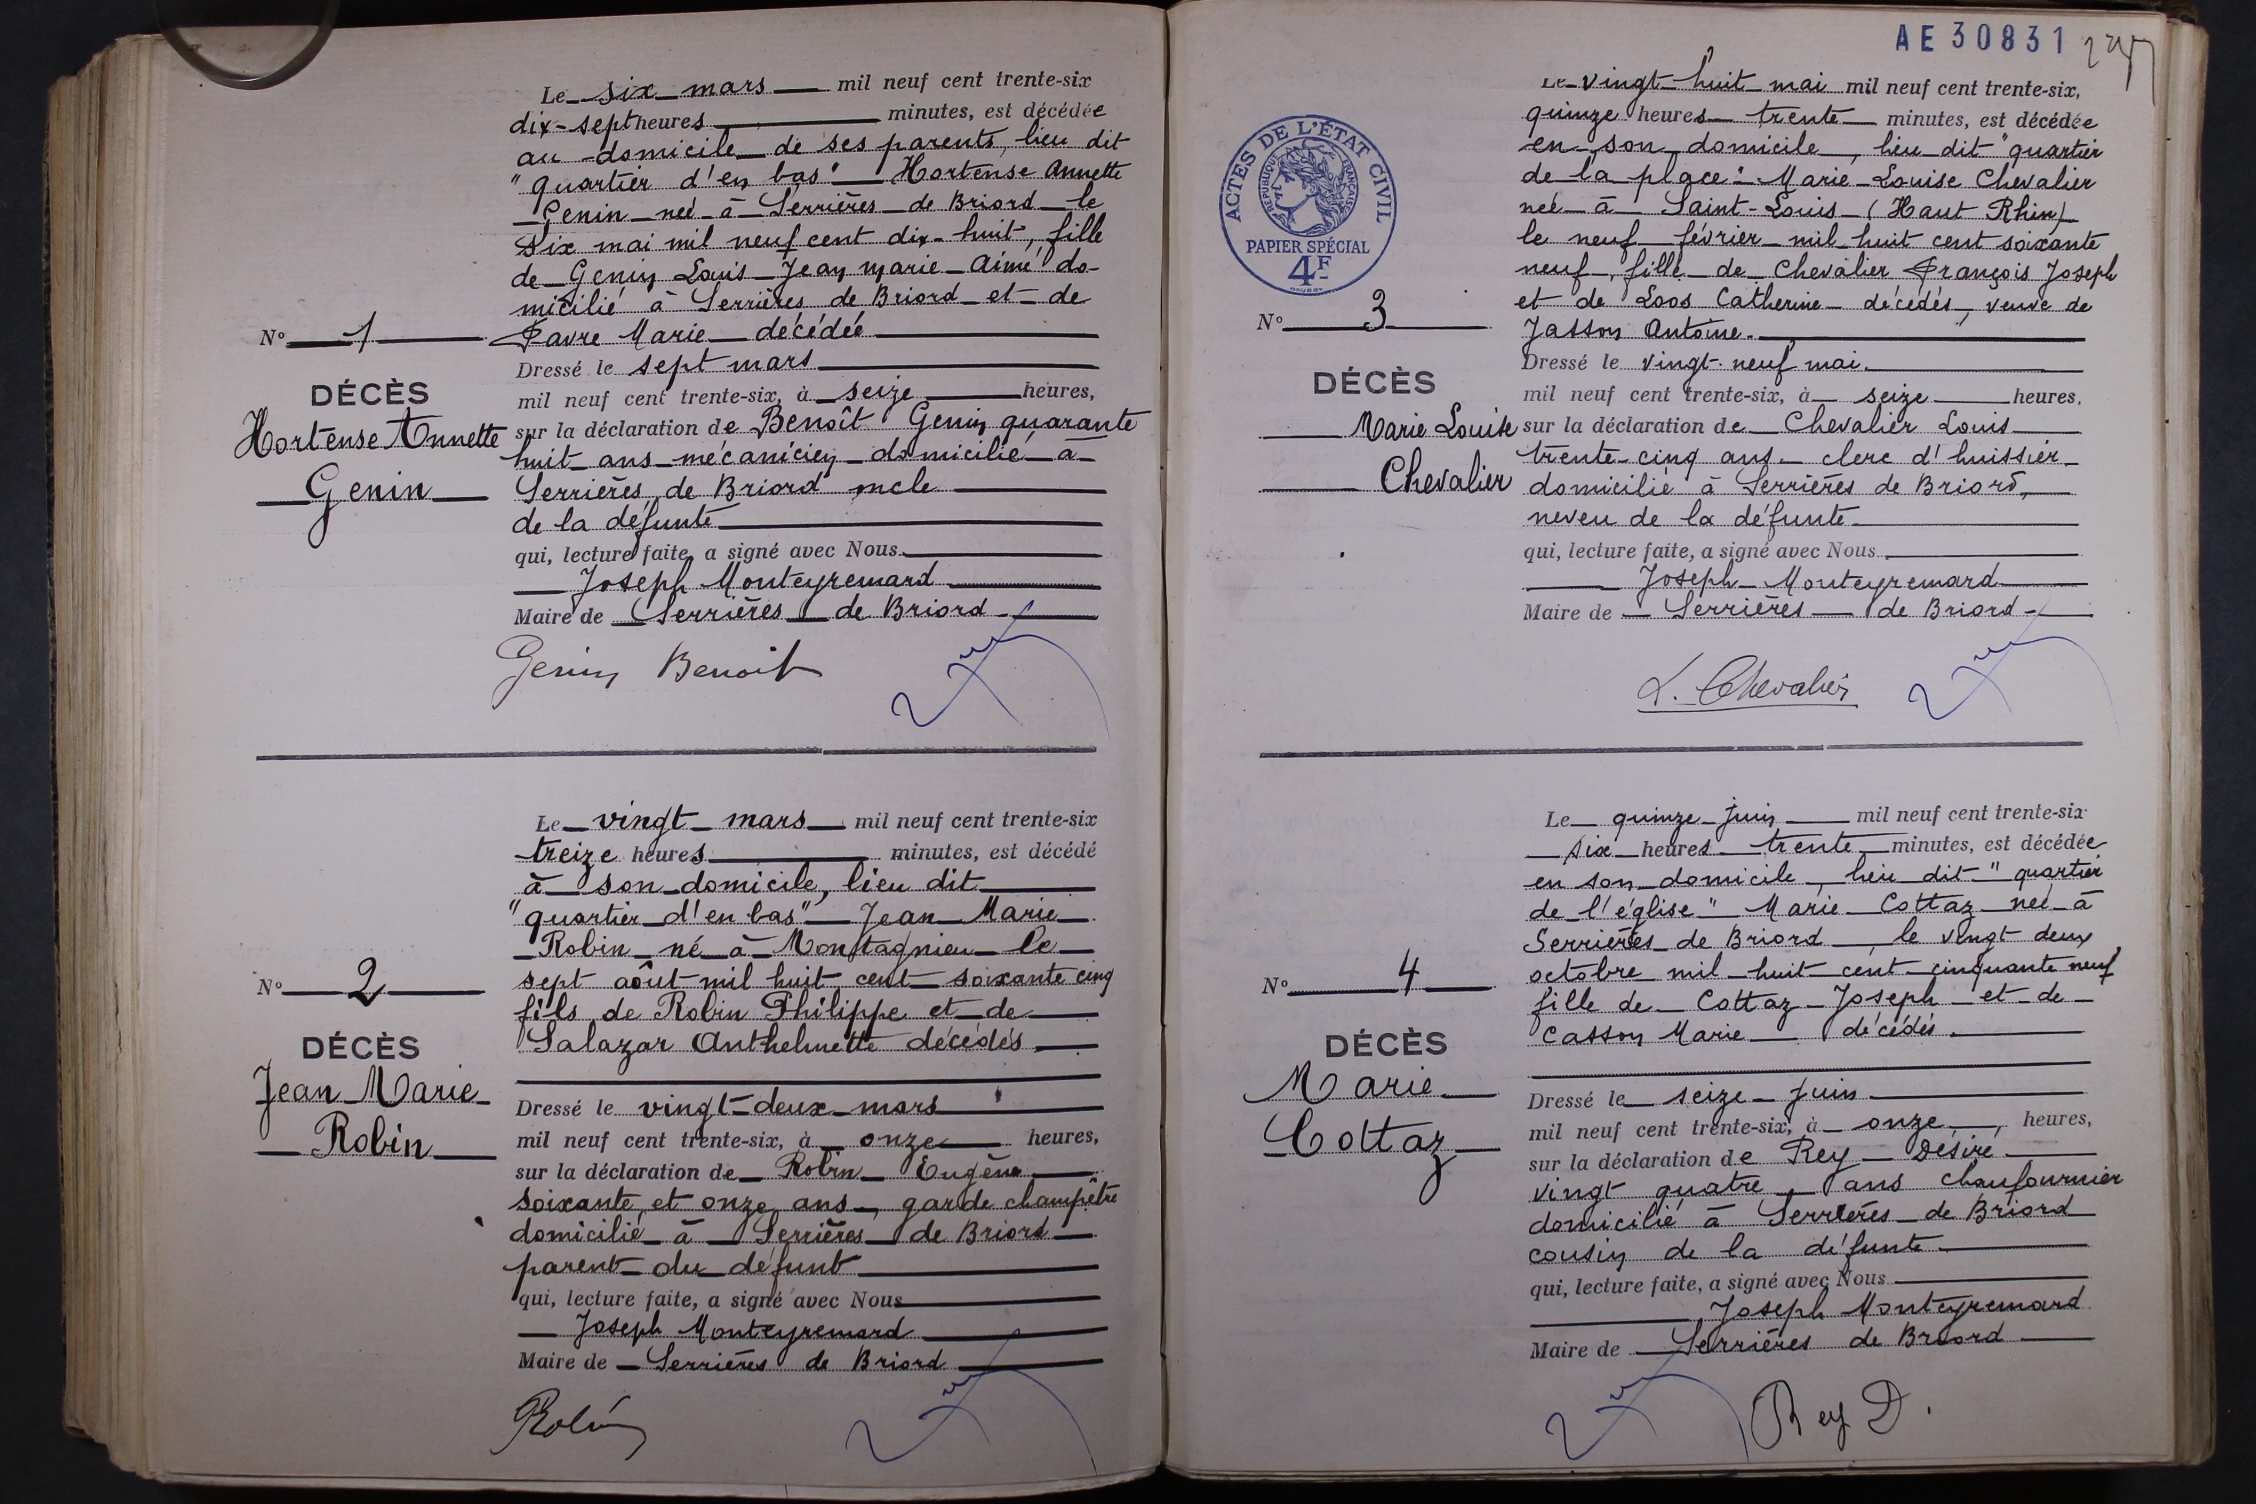 Le six mars mil neuf cent trente-six
dix-sept heures minutes, est décédée
au domicile de ses parents, lieu dit
"quartier d'en bas" Hortense Annette
Genin née à Serrières de Briord le
six mai mil neuf cent dix-huit, fille
de Genin Louis Jean Marie Aimé do-
micilié à Serrières de Briord et de
N° 1 Favre Marie décédée
Dressé le sept mars
DÉCÈS
mil neuf cent trente-six, à seize heures,
Hortense Annette
sur la déclaration de Benoît Genin quarante
huit ans mécanicien domicilié à
Genin
Serrières de Briord oncle
de la défunte
qui, lecture faite, a signé avec Nous
Joseph Monteyremard
Maire de Serrières de Briord
Genin Benoit
Le vingt mars mil neuf cent trente-six
treize heures minutes, est décédé
à son domicile, lieu dit
"quartier d'en bas" Jean Marie
Robin né à Montagnieu le
sept août mil huit cent soixante cinq
N° 2
fils de Robin Philippe et de
Salazar Anthelmette décédés
DÉCÈS
Jean Marie
Robin
Dressé le vingt-deux mars
mil neuf cent trente-six, à onze heures,
sur la déclaration de Robin Eugène
soixante et onze ans, garde champêtre
domicilié à Serrières de Briord
parent du défunt
qui, lecture faite, a signé avec Nous
Joseph Monteyremard
Maire de Serrières de Briord
Robin
AE 30831
Le vingt-huit mai mil neuf cent trente-six,
quinze heures trente minutes, est décédée
en son domicile, lieu dit "quartier
de la place" Marie-Louise Chevalier
neé à Saint-Louis (Haut Rhin)
le neuf février mil huit cent soixante
neuf, fille de Chevalier François Joseph
et de Loos Catherine décédés, veuve de
Jasson Antoine.
ACTES DE L'ÉTAT CIVIL
RÉPUBLIQUE FRANÇAISE
PAPIER SPÉCIAL
4F
N° 3
DÉCÈS
Marie Louise
Chevalier
Dressé le vingt-neuf mai.
mil neuf cent trente-six, à seize heures,
sur la déclaration de Chevalier Louis
trente-cinq ans clerc d'huissier
domicilié à Serrières de Briord,
neveu de la défunte
qui, lecture faite, a signé avec Nous
Joseph Monteyremard
Maire de Serrières de Briord
L. Chevalier
Le quinze juin mil neuf cent trente-six
six heures trente minutes, est décédée
en son domicile, lieu dit "quartier
de l'église" Marie Cottaz neé à
Serrières de Briord, le vingt deux
octobre mil huit cent cinquante neuf
N° 4
fille de Cottaz Joseph et de
Casson Marie décédés.
DÉCÈS
Marie
Cottaz
Dressé le seize juin
mil neuf cent trente-six, à onze, heures,
sur la déclaration de Rey Désiré
vingt quatre ans chaufournier
domicilié à Serrières de Briord
cousin de la défunte
qui, lecture faite, a signé avec Nous
Joseph Monteyremard
Maire de Serrières de Briord
Rey D.